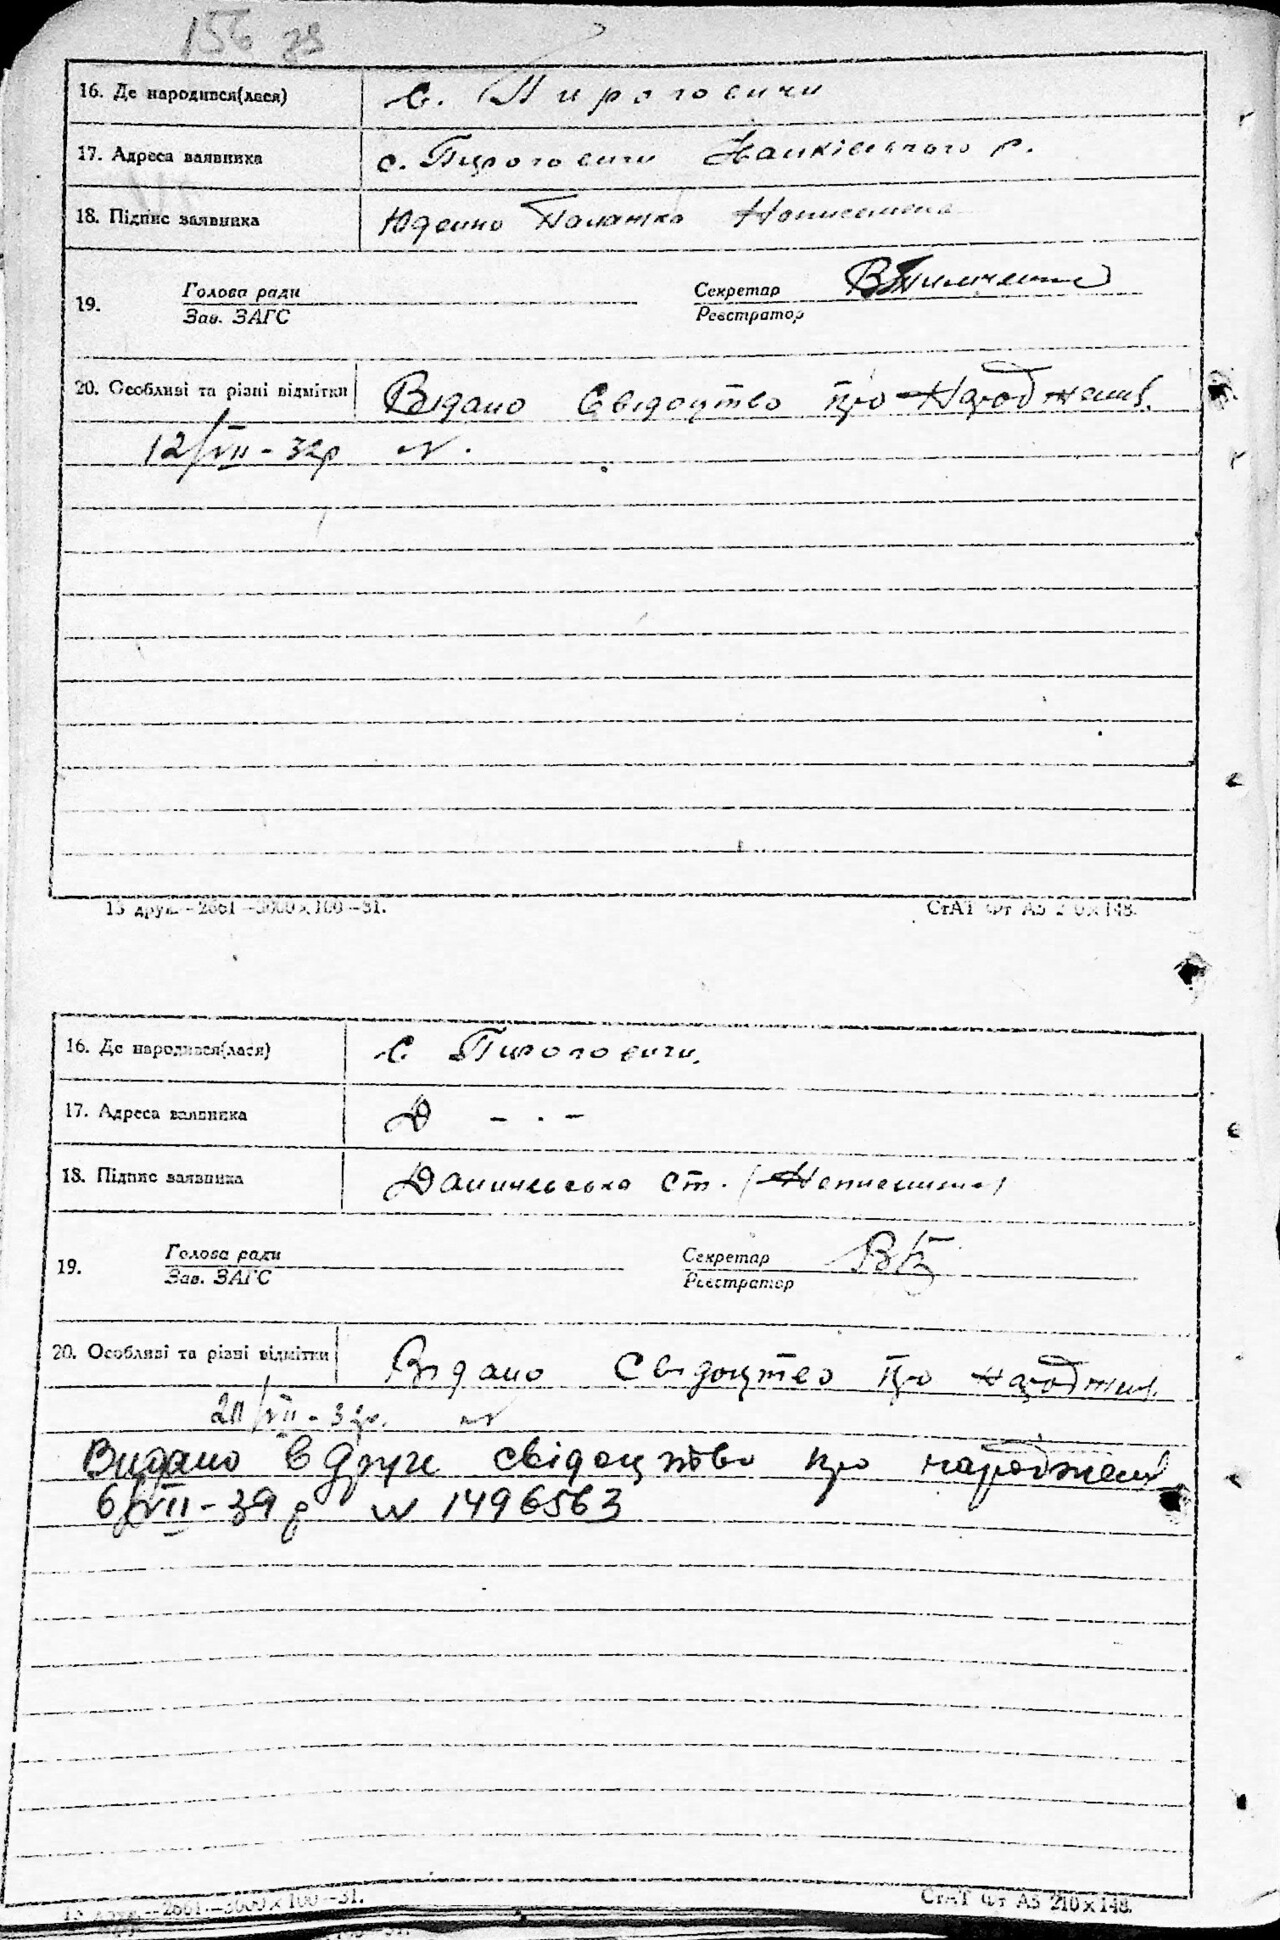 156 зв
16. Де народився(лася) с. Пироговичи
17. Адреса заявника с. Пироговичи Іванківського р.
18. Підпис заявника Юденко Палажка Неписьмена
19. Голова ради Секретар
Зав. ЗАГС Реєстратор
20. Особливі та різні відмітки Видано Свідоцтво про Народження
12/VII - 32р N.
15 друк. – 2661 – 3000 х 100 – 31. СтАТ Фт А5 210 х 148.
16. Де народився(лася) с Пироговичи.
17. Адреса заявника Д - . -
18. Підпис заявника Ст. (Неписьмена)
19. Голова ради Секретар
Зав. ЗАГС Реєстратор
20. Особливі та різні відмітки Видано Свідоцтво про народжен.
/VII - 32р. N
Видано в друге свідоцтво про народження
6/VII - 39 р N 1496563
15 друк. – 2661. – 3000 х 100 – 31. СтАТ Фт А5 210 х 148.